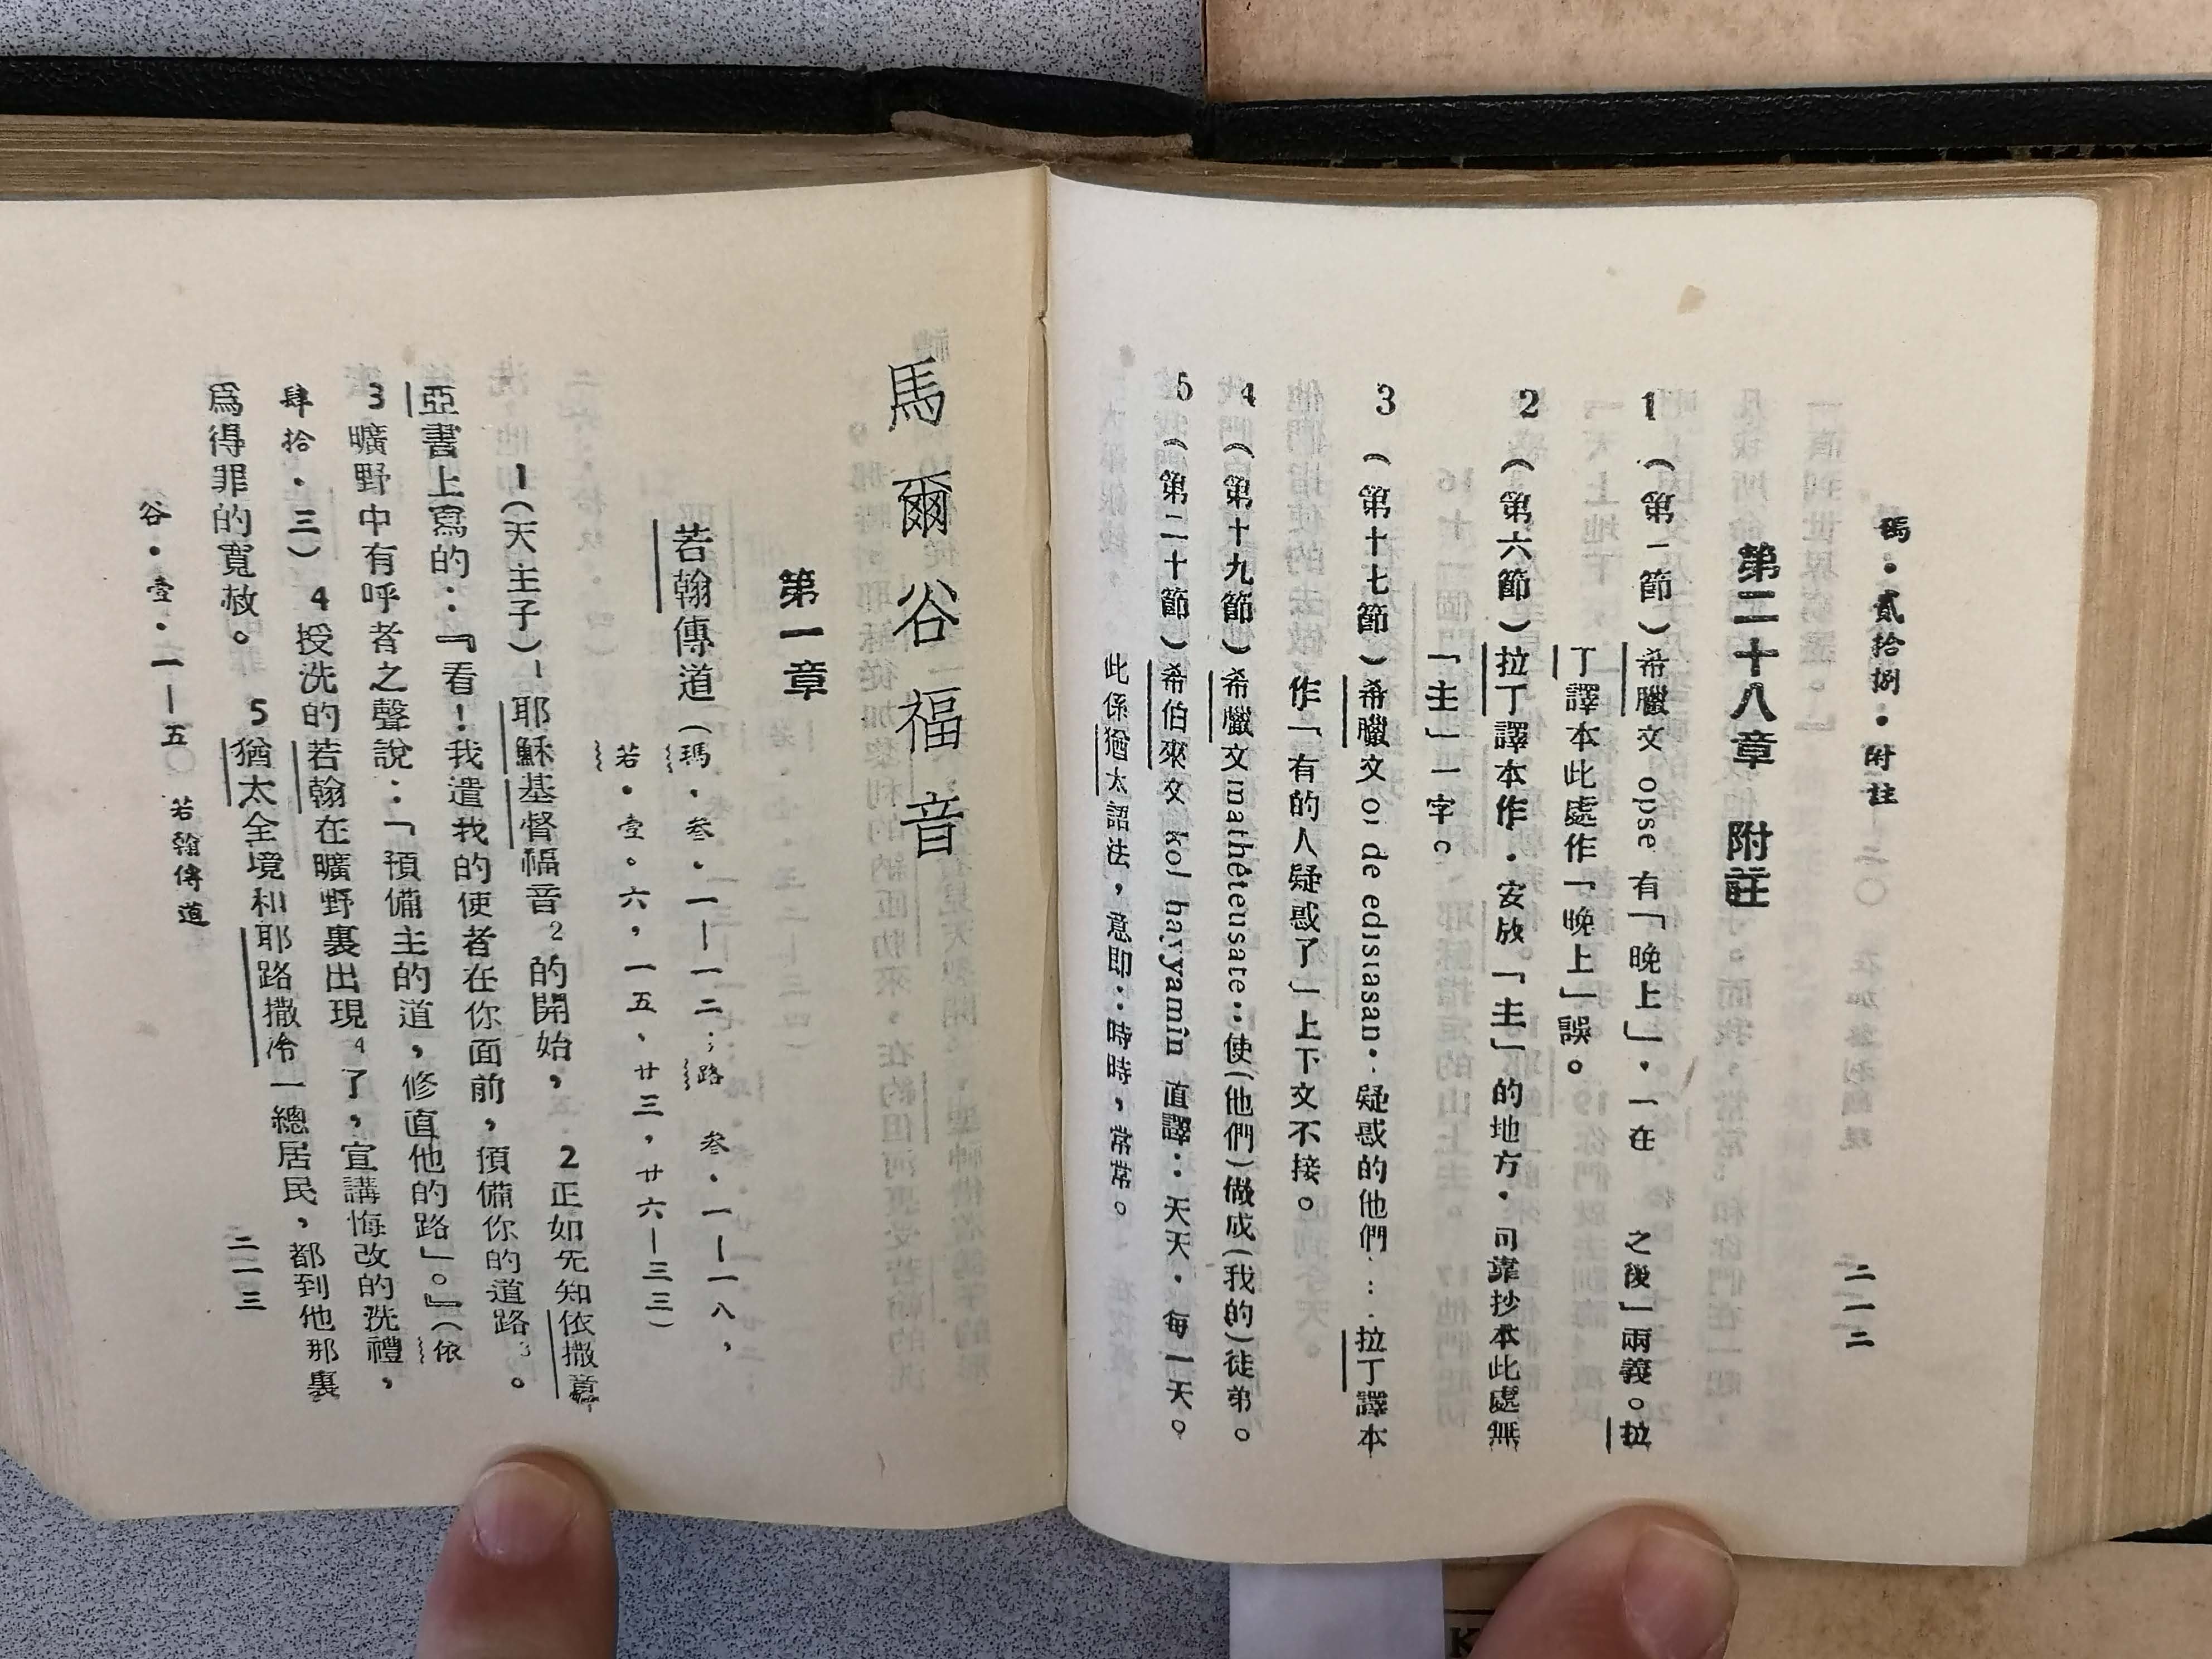 瑪·貳拾捌·附註
二一二
第二十八章 附註
1（第一節）希臘文 opse 有「晚上」·「在 之後」兩義。拉
丁譯本此處作「晚上」誤。
2（第六節）拉丁譯本作·安放「主」的地方·可靠抄本此處無
「主」一字。
3（第十七節）希臘文 oi de edistasan·疑惑的他們··拉丁譯本
作「有的人疑惑了」上下文不接。
4（第十九節）希臘文 mathêteusate：使(他們)做成(我的)徒弟。
5（第二十節）希伯來文 kol hayyamîn 直譯：天天·每一天。
此係猶太語法，意即：時時，常常。
馬爾谷福音
第一章
若翰傳道（瑪·叁·一—一二；路 叁·一—一八，
若·壹。六，一五、廿三，廿六—三三）
1(天主子)1耶穌基督福音2的開始， 2正如先知依撒意
亞書上寫的：『看！我遣我的使者在你面前，預備你的道路3。
3曠野中有呼者之聲說：「預備主的道，修直他的路」。』（依
肆拾·三） 4授洗的若翰在曠野裏出現4了，宣講悔改的洗禮，
爲得罪的寬赦。 5猶太全境和耶路撒冷一總居民，都到他那裏
谷·壹·一—五〇 若翰傳道
二一三
K